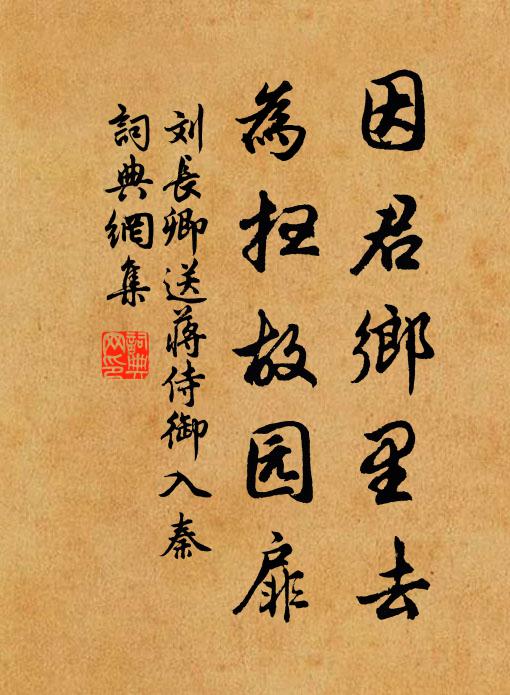 因君鄉里去
為扫故园扉
刘長卿送蔣侍御入秦
詞典網集
詞典网印